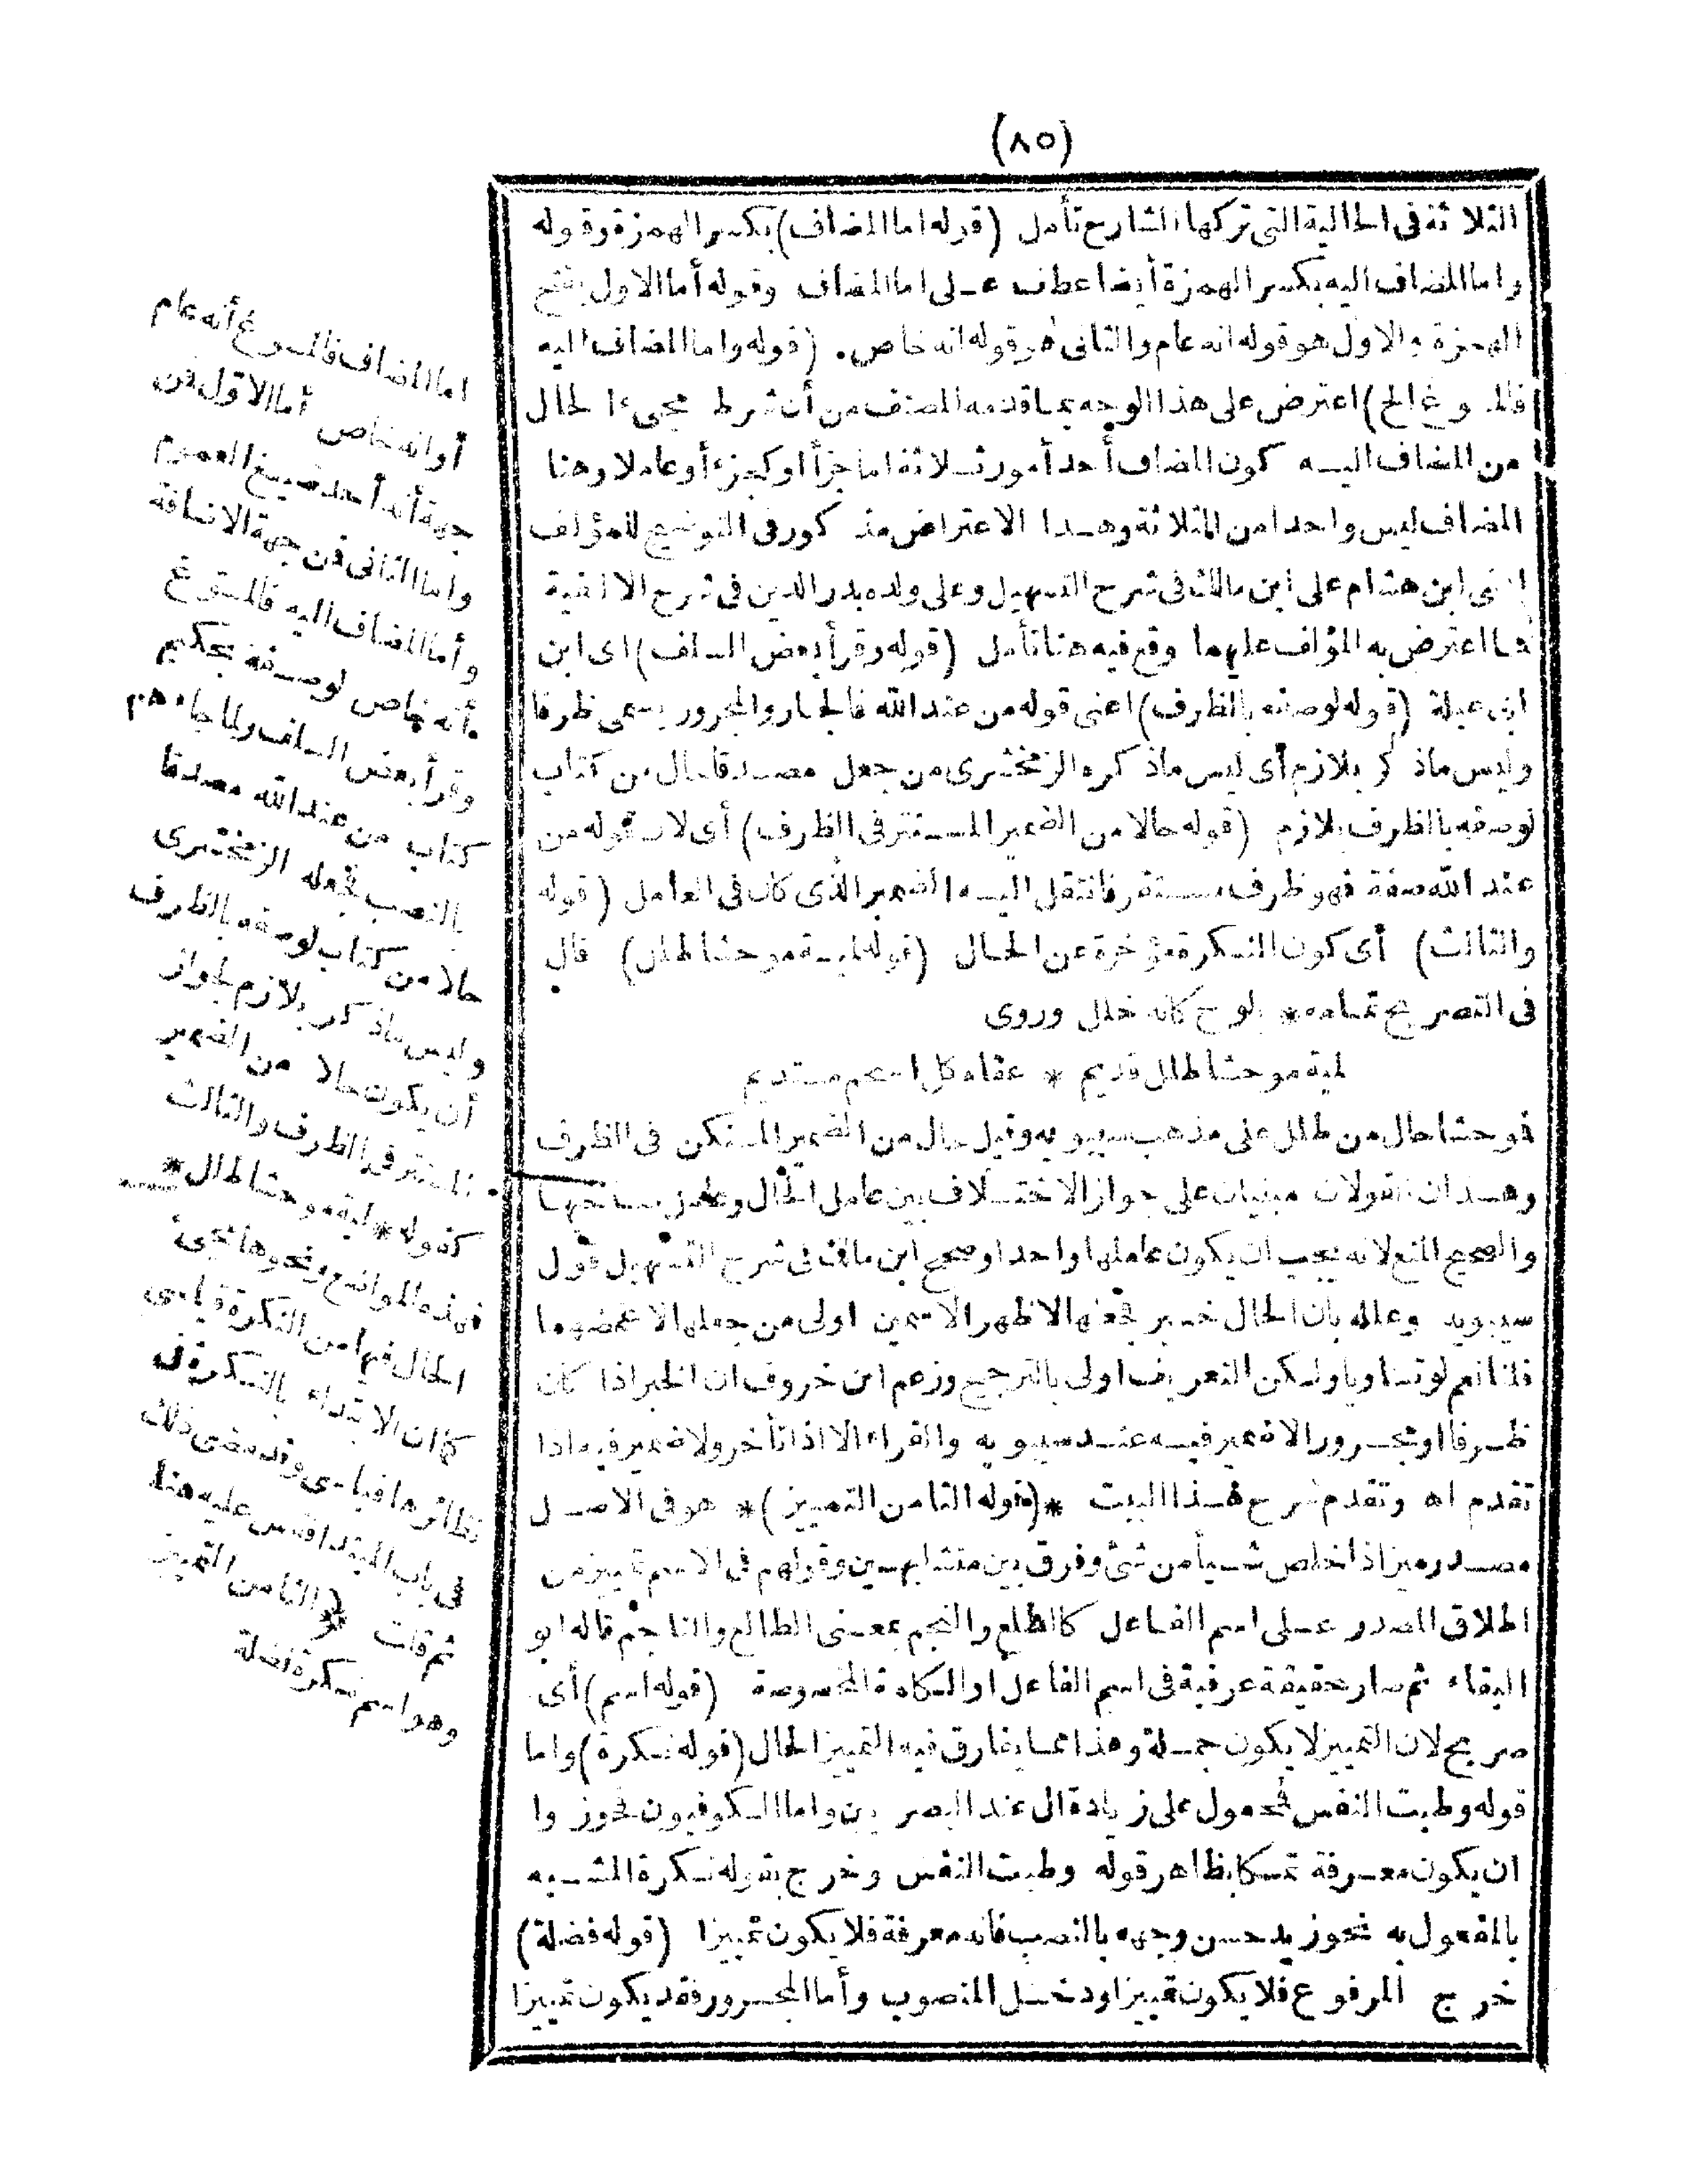 (٨٥)
الثلاثة فى الحالية التى تركها الشارح تأمل (قوله اما المضاف) بكسر الهمزة وقوله
واما المضاف اليه بكسر الهمزة أيضا عطف على اما المضاف وقوله أما الاول بفتح
الهمزة والاول هو قوله انه عام والثانى هو قوله انه خاص. (قوله واما المضاف اليه
فالمسوغ الخ) اعترض على هذا الوجه بما قدمه المصنف من أن شرط مجىء الحال
من المضاف اليه كون المضاف أحد أمور ثلاثة اما جزأ او كجزء أو عاملا وهنا
المضاف ليس واحدا من الثلاثة وهذا الاعتراض مذ كور فى التوضيح للمؤلف
اعنى ابن هشام على ابن مالك فى شرح التسهيل وعلى ولده بدر الدين فى شرح الالفية
فما اعترض به المؤلف عليهما وقع فيه هنا تأمل (قوله وقرأ بعض السلف) اى ابن
ابى عبلة (قوله لوصفه بالظرف) اعنى قوله من عند الله فالجار والمجرور يسمى ظرفا
وليس ماذ كر بلازم أى ليس ماذ كره الزمخشرى من جعل مصدقا حال من كتاب
لوصفه بالظرف بلازم (قوله حالا من الضمير المستتر فى الظرف) أى لان قوله من
عند الله صفة فهو ظرف مستقر فانتقل اليه الضمير الذى كان فى العامل (قوله
والثالث) أى كون النكرة مؤخرة عن الحال (قوله لمية موحشا طلل) قال
فى التصريح تمامه * يلوح كانه خلل وروى
لمية موحشا طلل قديم * عفاه كل اسحم مستديم
فموحشا حال من طلل على مذهب سيبويه وقيل حال من الضمير المستكن فى الظرف
وهذان القولان مبنيان على جواز الاختلاف بين عامل الحال وعامل صاحبها
والصحيح المنع لانه يجب ان يكون عاملها واحدا وصحح ابن مالك فى شرح التسهيل قول
سيبويه وعلله بان الحال خبر فجعلها لاظهر الاسمين اولى من جعلها لاغمضهما
قلنا نعم لو تساويا ولكن التعريف اولى بالترجيح وزعم ابن خروف ان الخبر اذا كان
ظرفا او مجرورا لا ضمير فيه عند سيبويه والفراء الا اذا تأخر ولا ضمير فيه اذا
تقدم اه وتقدم شرح هذا البيت *(قوله الثامن التمييز)* هو فى الاصل
مصدر ميز اذا خلص شيأ من شئ وفرق بين متشابهين وقولهم فى الاسم تمييز من
اطلاق المصدر على اسم الفاعل كالطلع والنجم بمعنى الطالع والناجم قاله ابو
البقاء ثم صار حقيقة عرفية فى اسم الفاعل او الكلمة المخصوصة (قوله اسم) أى
صريح لان التمييز لا يكون جملة وهذا مما يفارق فيه التمييز الحال (قوله نكرة) واما
قوله وطبت النفس فمحمول على زيادة ال عند البصريين واما الكوفيون فجوزوا
ان يكون معرفة تمسكا بظاهر قوله وطبت النفس وخرج بقوله نكرة المشبه
بالمفعول به نحو زيد حسن وجهه بالنصب فانه معرفة فلا يكون تمييزا (قوله فضلة)
خرج المرفوع فلا يكون تمييزا ودخل المنصوب وأما المجرور فقد يكون تمييزا
اما المضاف فالمسوغ أنه عام
أو انه خاص أما الاول فمن
جهة أنه أحد صيغ العموم
واما الثانى فمن جهة الاضافة
وأما المضاف اليه فالمسوغ
أنه خاص لوصفه بحكيم
وقرأ بعض السلف ولما جاءهم
كتاب من عند الله مصدقا
بالنصب فجعله الزمخشرى
حالا من كتاب لوصفه بالظرف
وليس ماذ كر بلازم لجواز
أن يكون حالا من الضمير
المستتر فى الظرف والثالث
كقوله * لمية موحشا طلل *
فهذه المواضع ونحوها مجىء
الحال فيها من النكرة قياسى
كما ان الابتداء بالنكرة فى
نظائرها قياسى وقد مضى ذلك
فى باب المبتدا فقس عليه هنا
ثم قلت * الثامن التمييز
وهو اسم نكرة فضلة